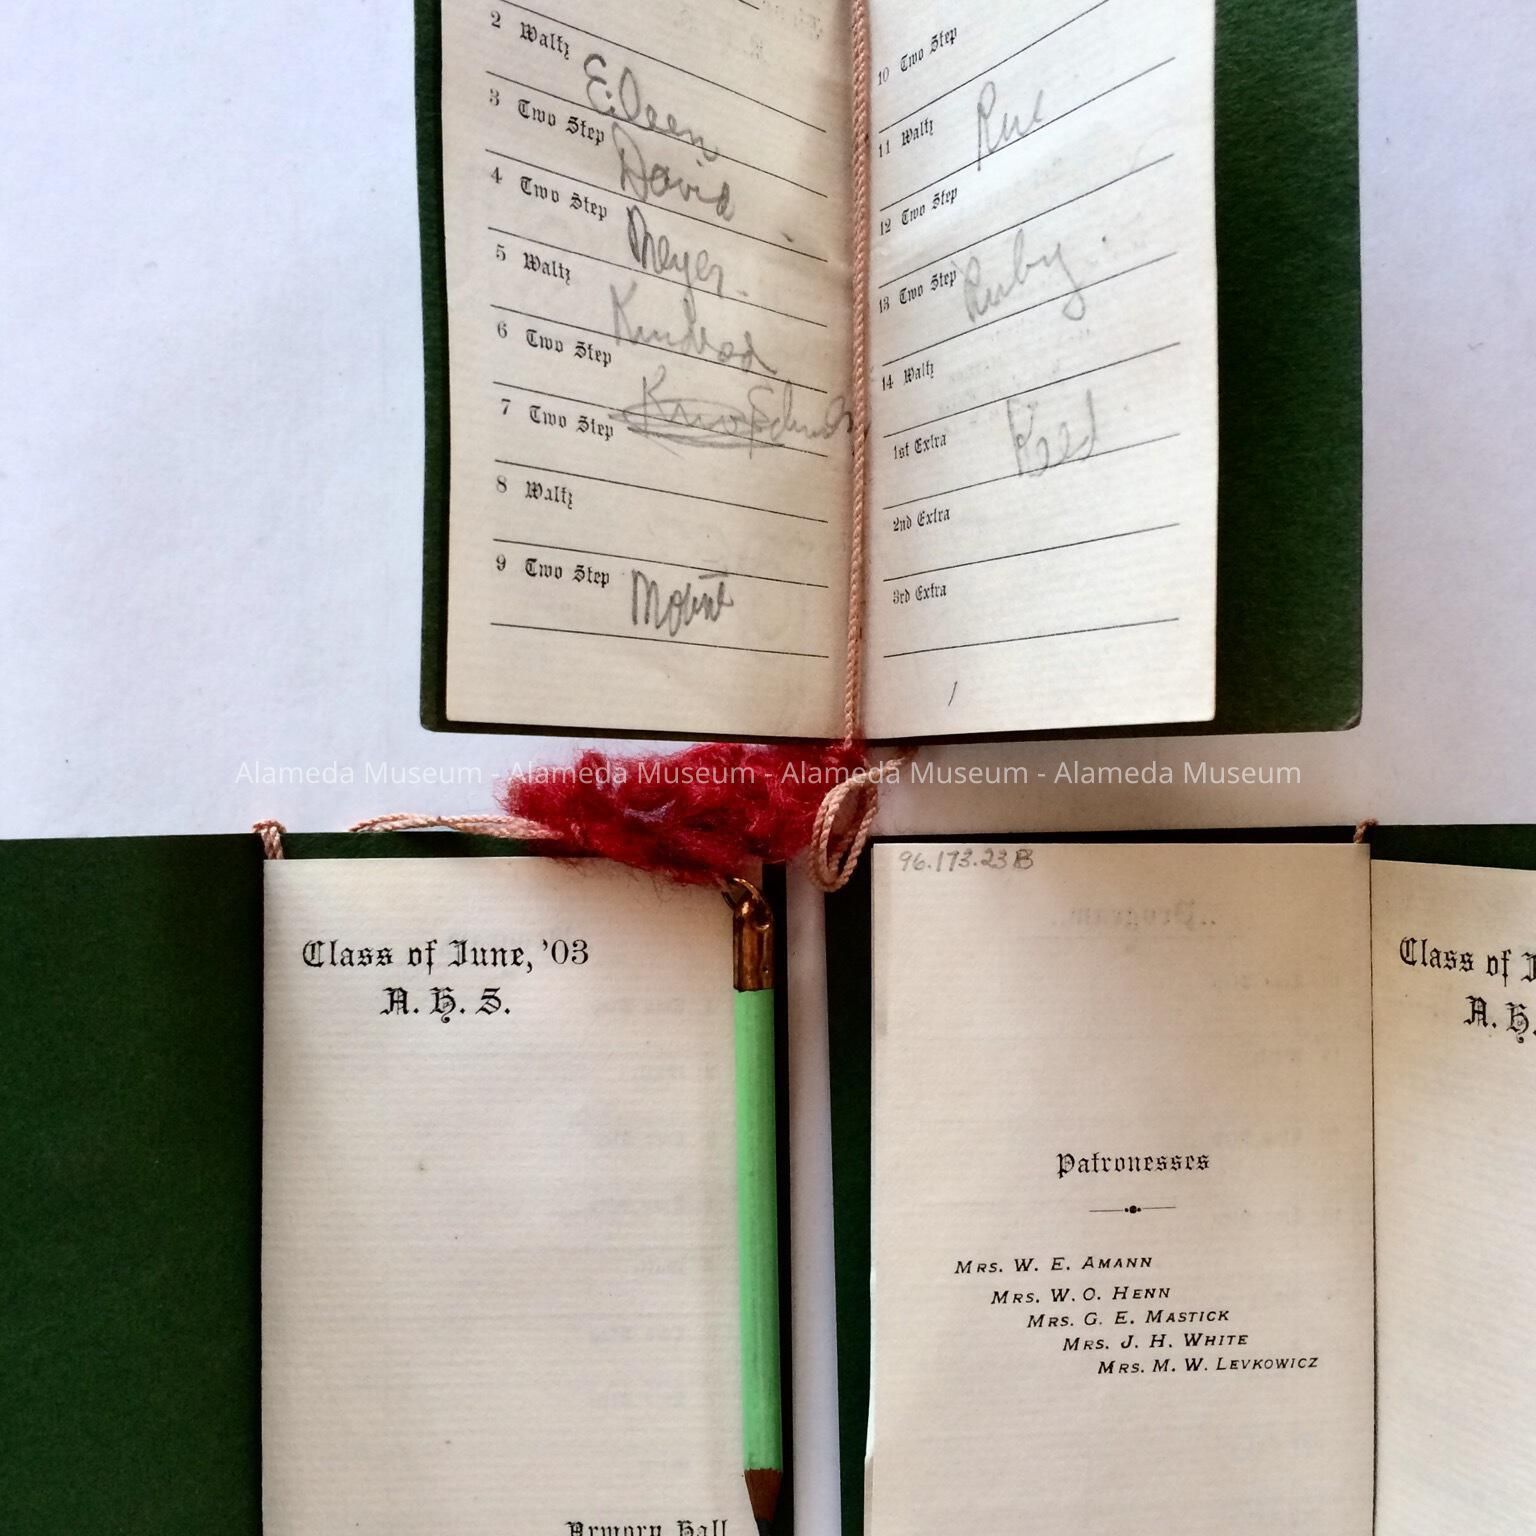 2 Waltz Eileen
3 Two Step David
4 Two Step Meyer.
5 Waltz Kindred
6 Two Step
7 Two Step
8 Waltz
9 Two Step Mount
10 Two Step
11 Waltz Rue
12 Two Step
13 Two Step Ruby.
14 Waltz
1st Extra
2nd Extra
3rd Extra
Alameda Museum - Alameda Museum - Alameda Museum - Alameda Museum
Class of June, '03
A. H. S.
Armory Hall
96.173.23B
Patronesses
Mrs. W. E. Amann
Mrs. W. O. Henn
Mrs. G. E. Mastick
Mrs. J. H. White
Mrs. M. W. Levkowicz
Class of J
A. H.